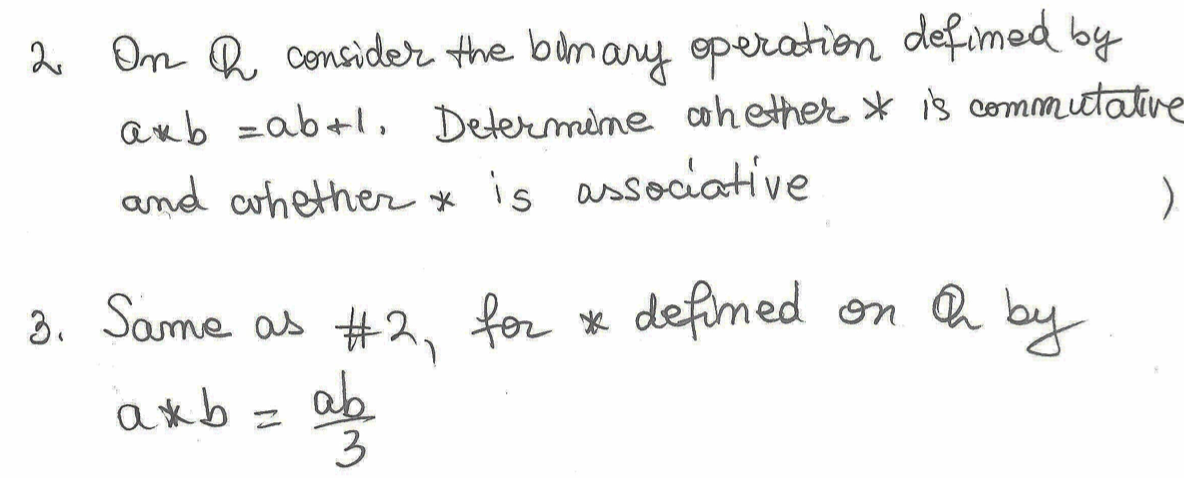 2. On ℚ consider the binary operation defined by
a*b = ab+1. Determine whether * is commutative
and whether * is associative )
3. Same as #2, for * defined on ℚ by
a*b = ab/3